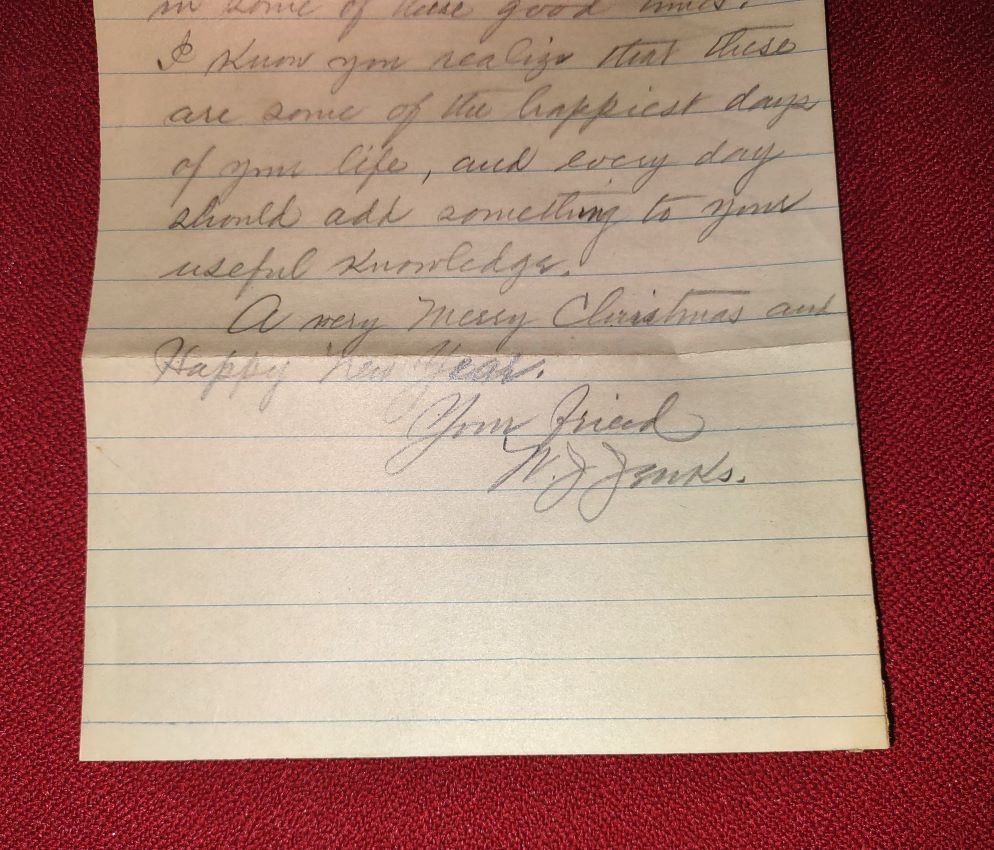 in some of these good times.
I know you realize that these
are some of the happiest days
of your life, and every day
should add something to your
useful knowledge.
A very Merry Christmas and
Happy New Year.
Your friend
W. J. Jenks.